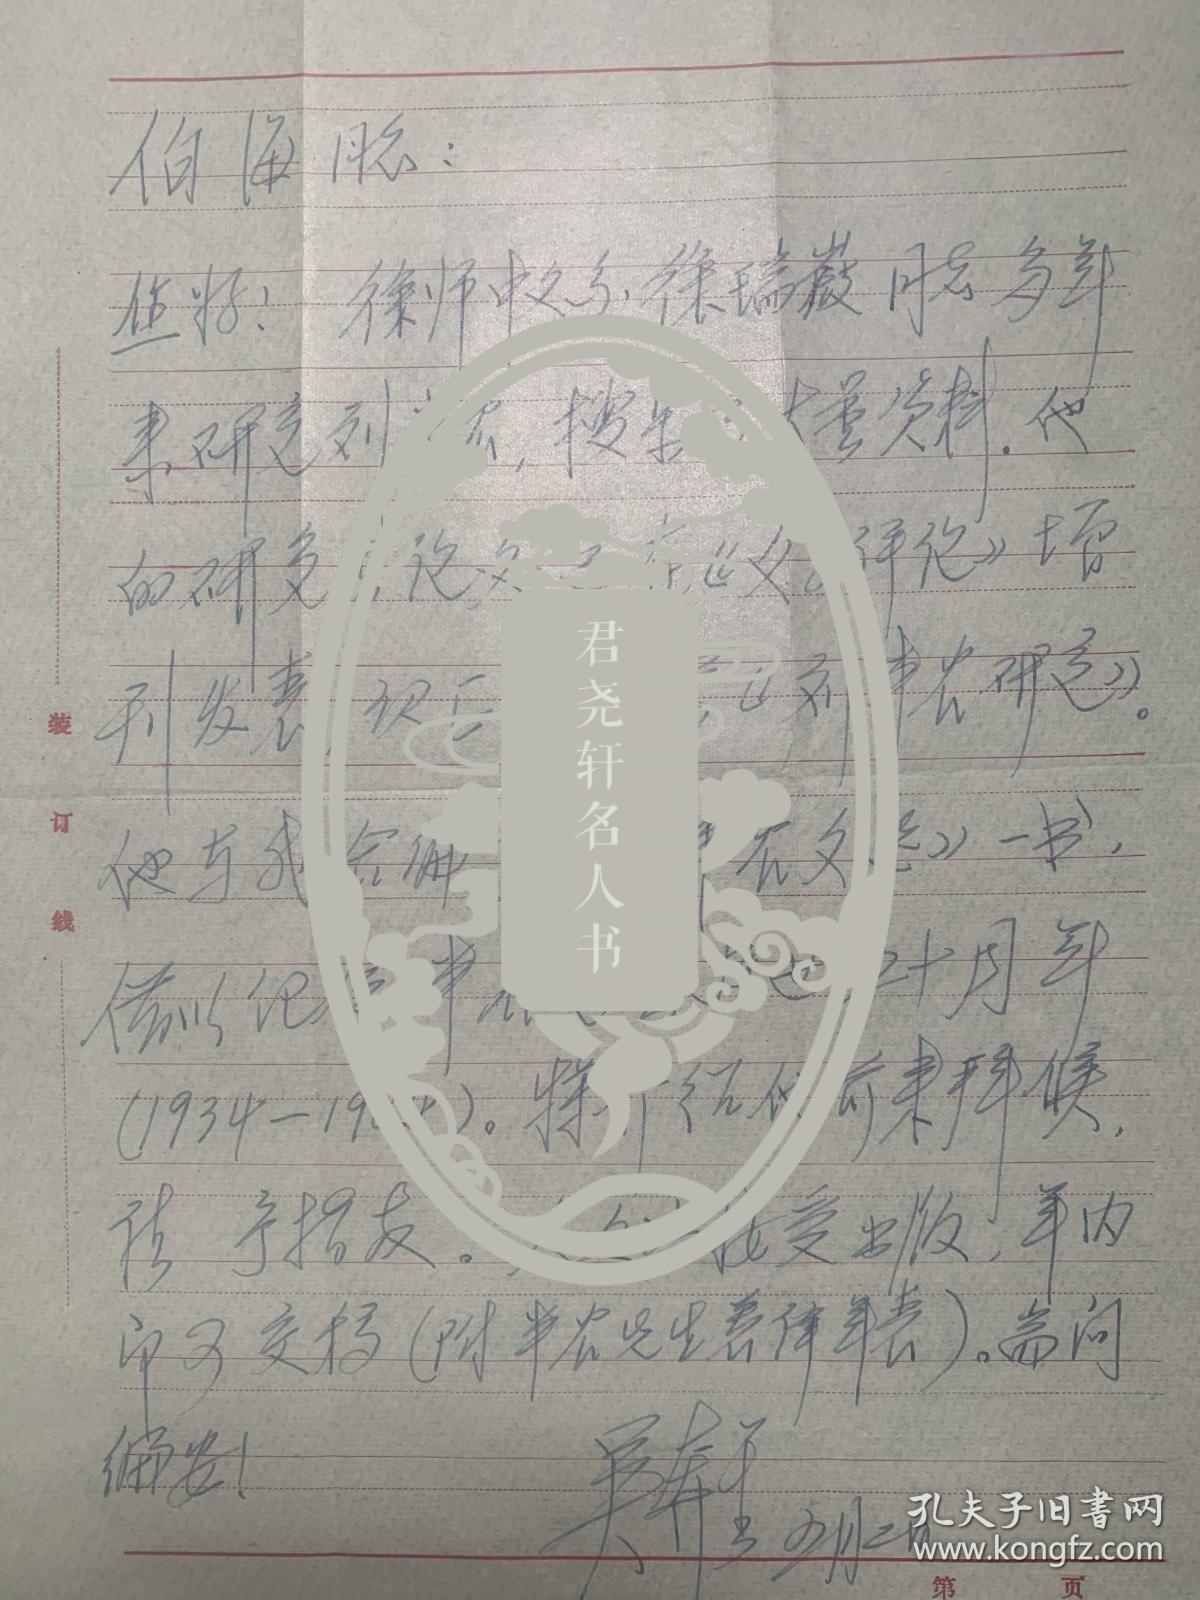 伯海同志：
您好！徐师中文系徐瑞嶽同志多年
来研究刘半农，搜集 大量资料。他
的研究 论文 在《文 评论》增
刊发表，现 《刘半农研究》。
他与我合编 农文选》一书，
借以纪念半农 五十周年
(1934—19 4)。特介绍他前来拜候，
请予指教。 接受出版，年内
即可交稿(附半农先生著译年表)。耑问
编安！
吴奔星 月二
装
订
线
第 页
君尧轩名人书
孔夫子旧书网
www.kongfz.com